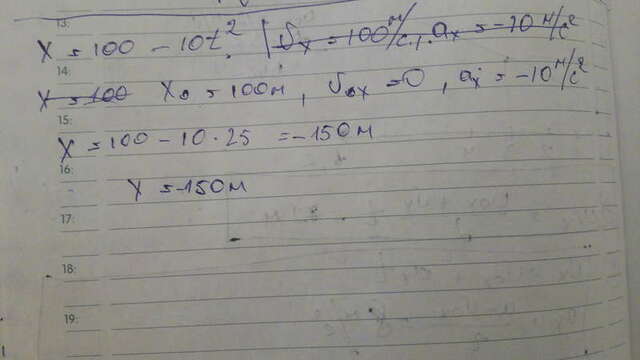 13.
X = 100 - 10t². | Vx = 100 м/с, ax = -10 м/с²
14.
X = 100 X₀ = 100м, V₀x = 0, ax = -10 м/с²
15:
X = 100 - 10 · 25 = -150м
16:
X = -150м
17:
18:
19: